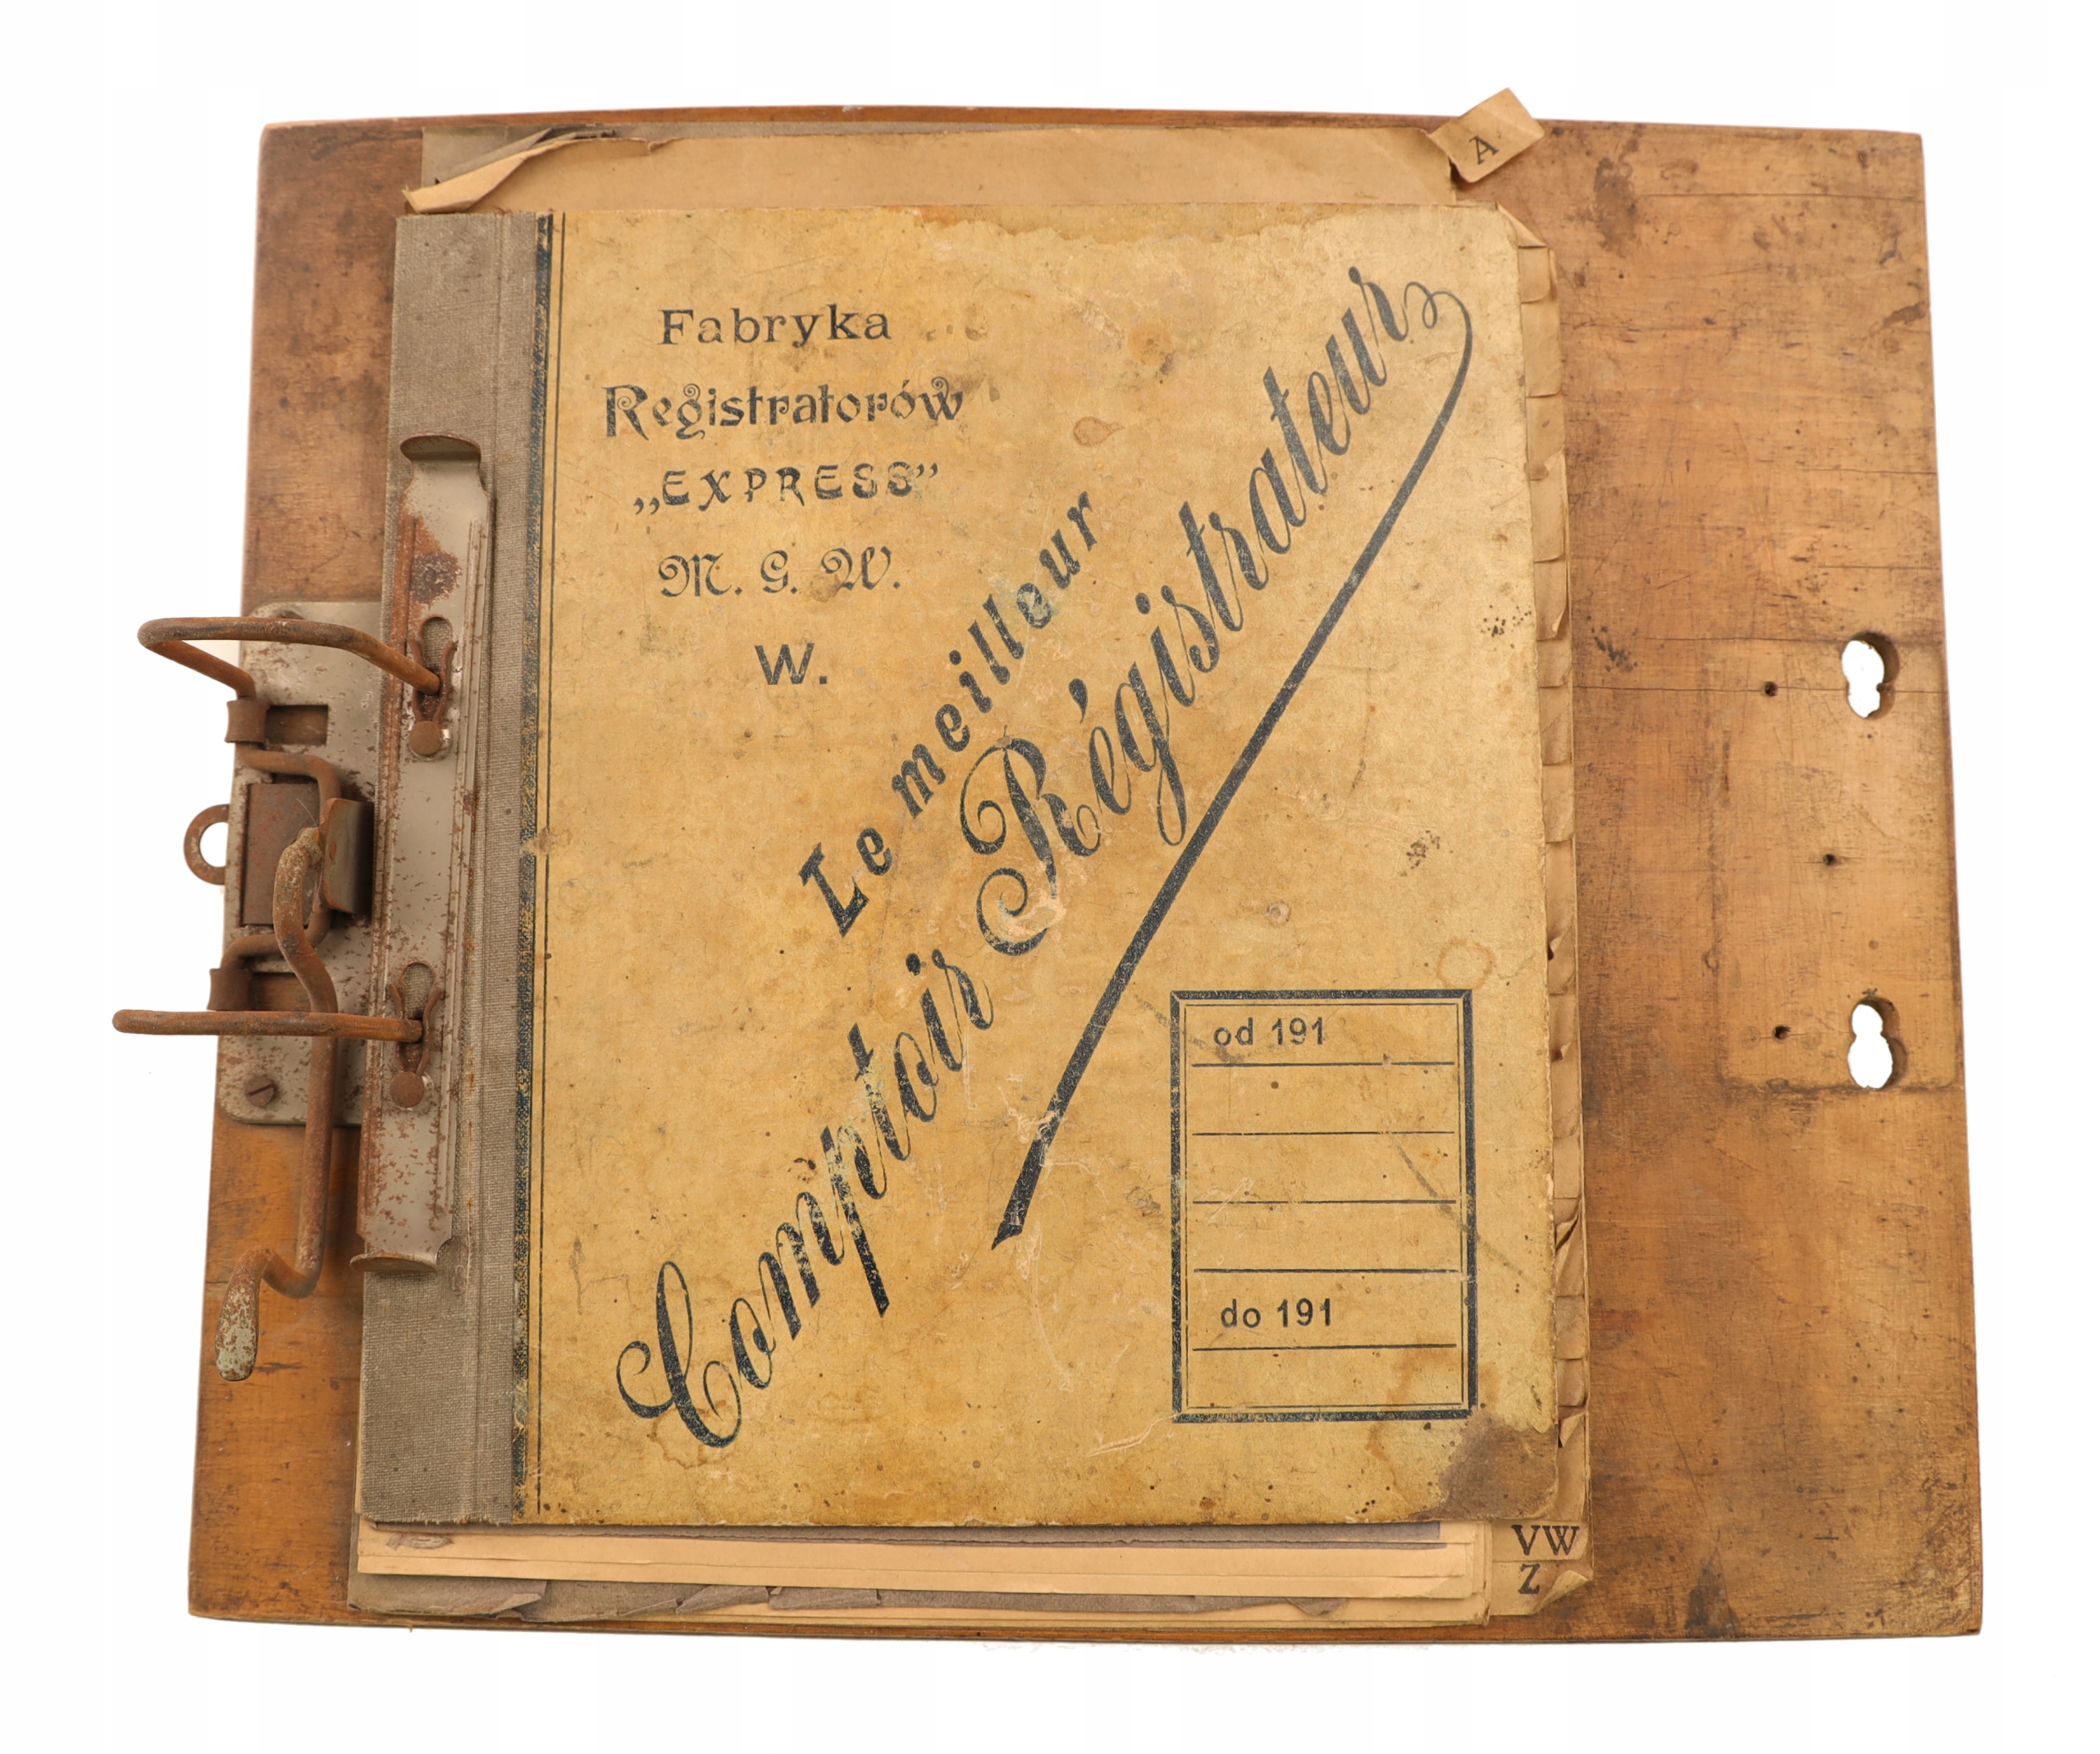 A
Fabryka
Registratorów
„EXPRESS”
M. G. W.
W.
Le meilleur
Comptoir Régistrateur
od 191
do 191
VW
Z